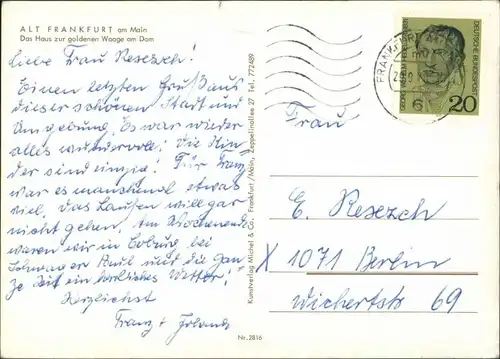 ALT FRANKFURT am Main
Das Haus zur goldenen Waage am Dom
Liebe Frau Resezch!
Einen letzten Gruß aus
dieser schönen Stadt und
Umgebung. Es war wieder
alles wundervoll! Die Kin-
der sind einzig! Für Franz
war es manchmal etwas
viel, das Laufen will gar
nicht gehen. Am Wochenende
waren wir in bei
Schwager Paul und die gan-
ze Zeit ein herrliches Wetter!
Herzlichst
Franz +
Kunstverlag Michel & Co., Frankfurt/Main, Zeppelinallee 27 Tel. 777489
Nr. 2816
FRANKFURT
6
DEUTSCHE BUNDESPOST
20
Frau
E. Resezch
X 1071 Berlin
Wichertstr 69